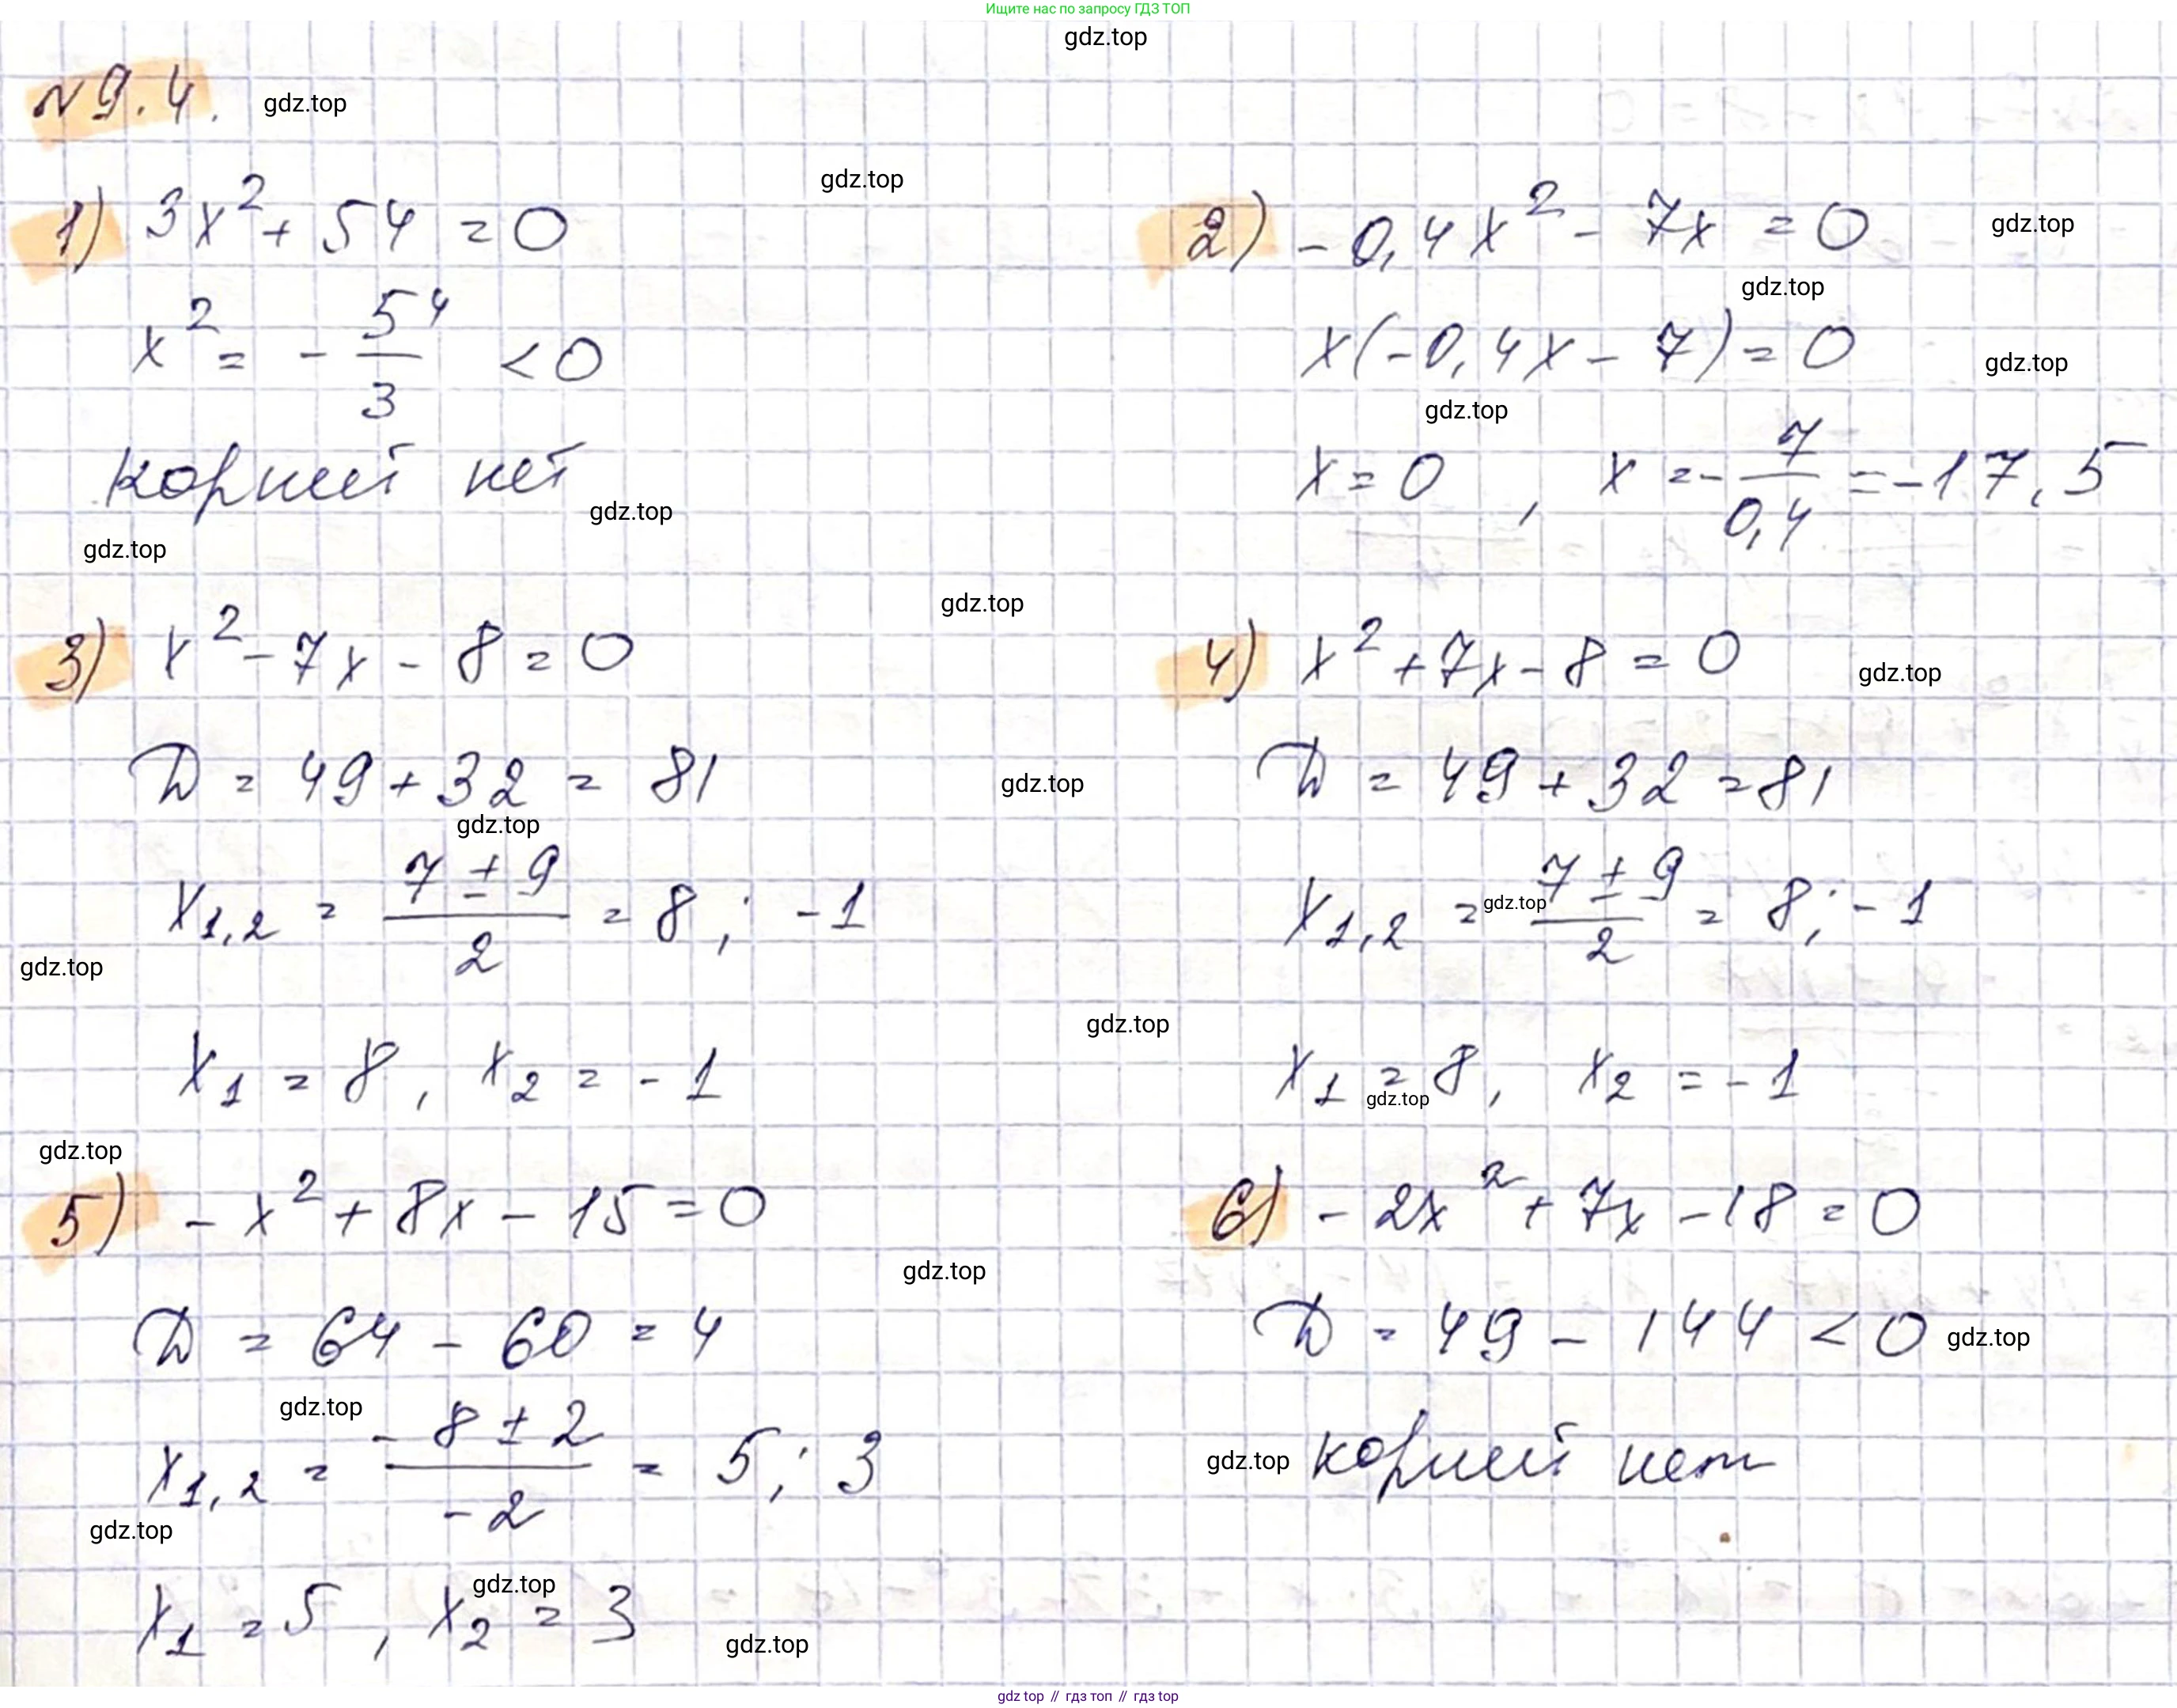 Ищите нас по запросу ГДЗ ТОП
gdz.top
№9.4.
gdz.top
1) 3x² + 54 = 0
gdz.top
x² = - 54/3 < 0
корней нет
gdz.top
gdz.top
2) -0,4x² - 7x = 0
gdz.top
gdz.top
x(-0,4x - 7) = 0
gdz.top
gdz.top
x = 0 , x = - 7/0,4 = -17,5
gdz.top
3) x² - 7x - 8 = 0
D = 49 + 32 = 81
gdz.top
gdz.top
x1,2 = (7 ± 9)/2 = 8 ; -1
gdz.top
x1 = 8 , x2 = -1
gdz.top
4) x² + 7x - 8 = 0
gdz.top
D = 49 + 32 = 81
x1,2 = (7 ± 9)/2 = 8 ; -1
gdz.top
x1 = 8 , x2 = -1
gdz.top
gdz.top
5) -x² + 8x - 15 = 0
gdz.top
D = 64 - 60 = 4
gdz.top
x1,2 = (-8 ± 2)/-2 = 5 ; 3
gdz.top
gdz.top
x1 = 5 , x2 = 3
gdz.top
6) -2x² + 7x - 18 = 0
D = 49 - 144 < 0
gdz.top
gdz.top
корней нет
gdz top // гдз топ // gdz top